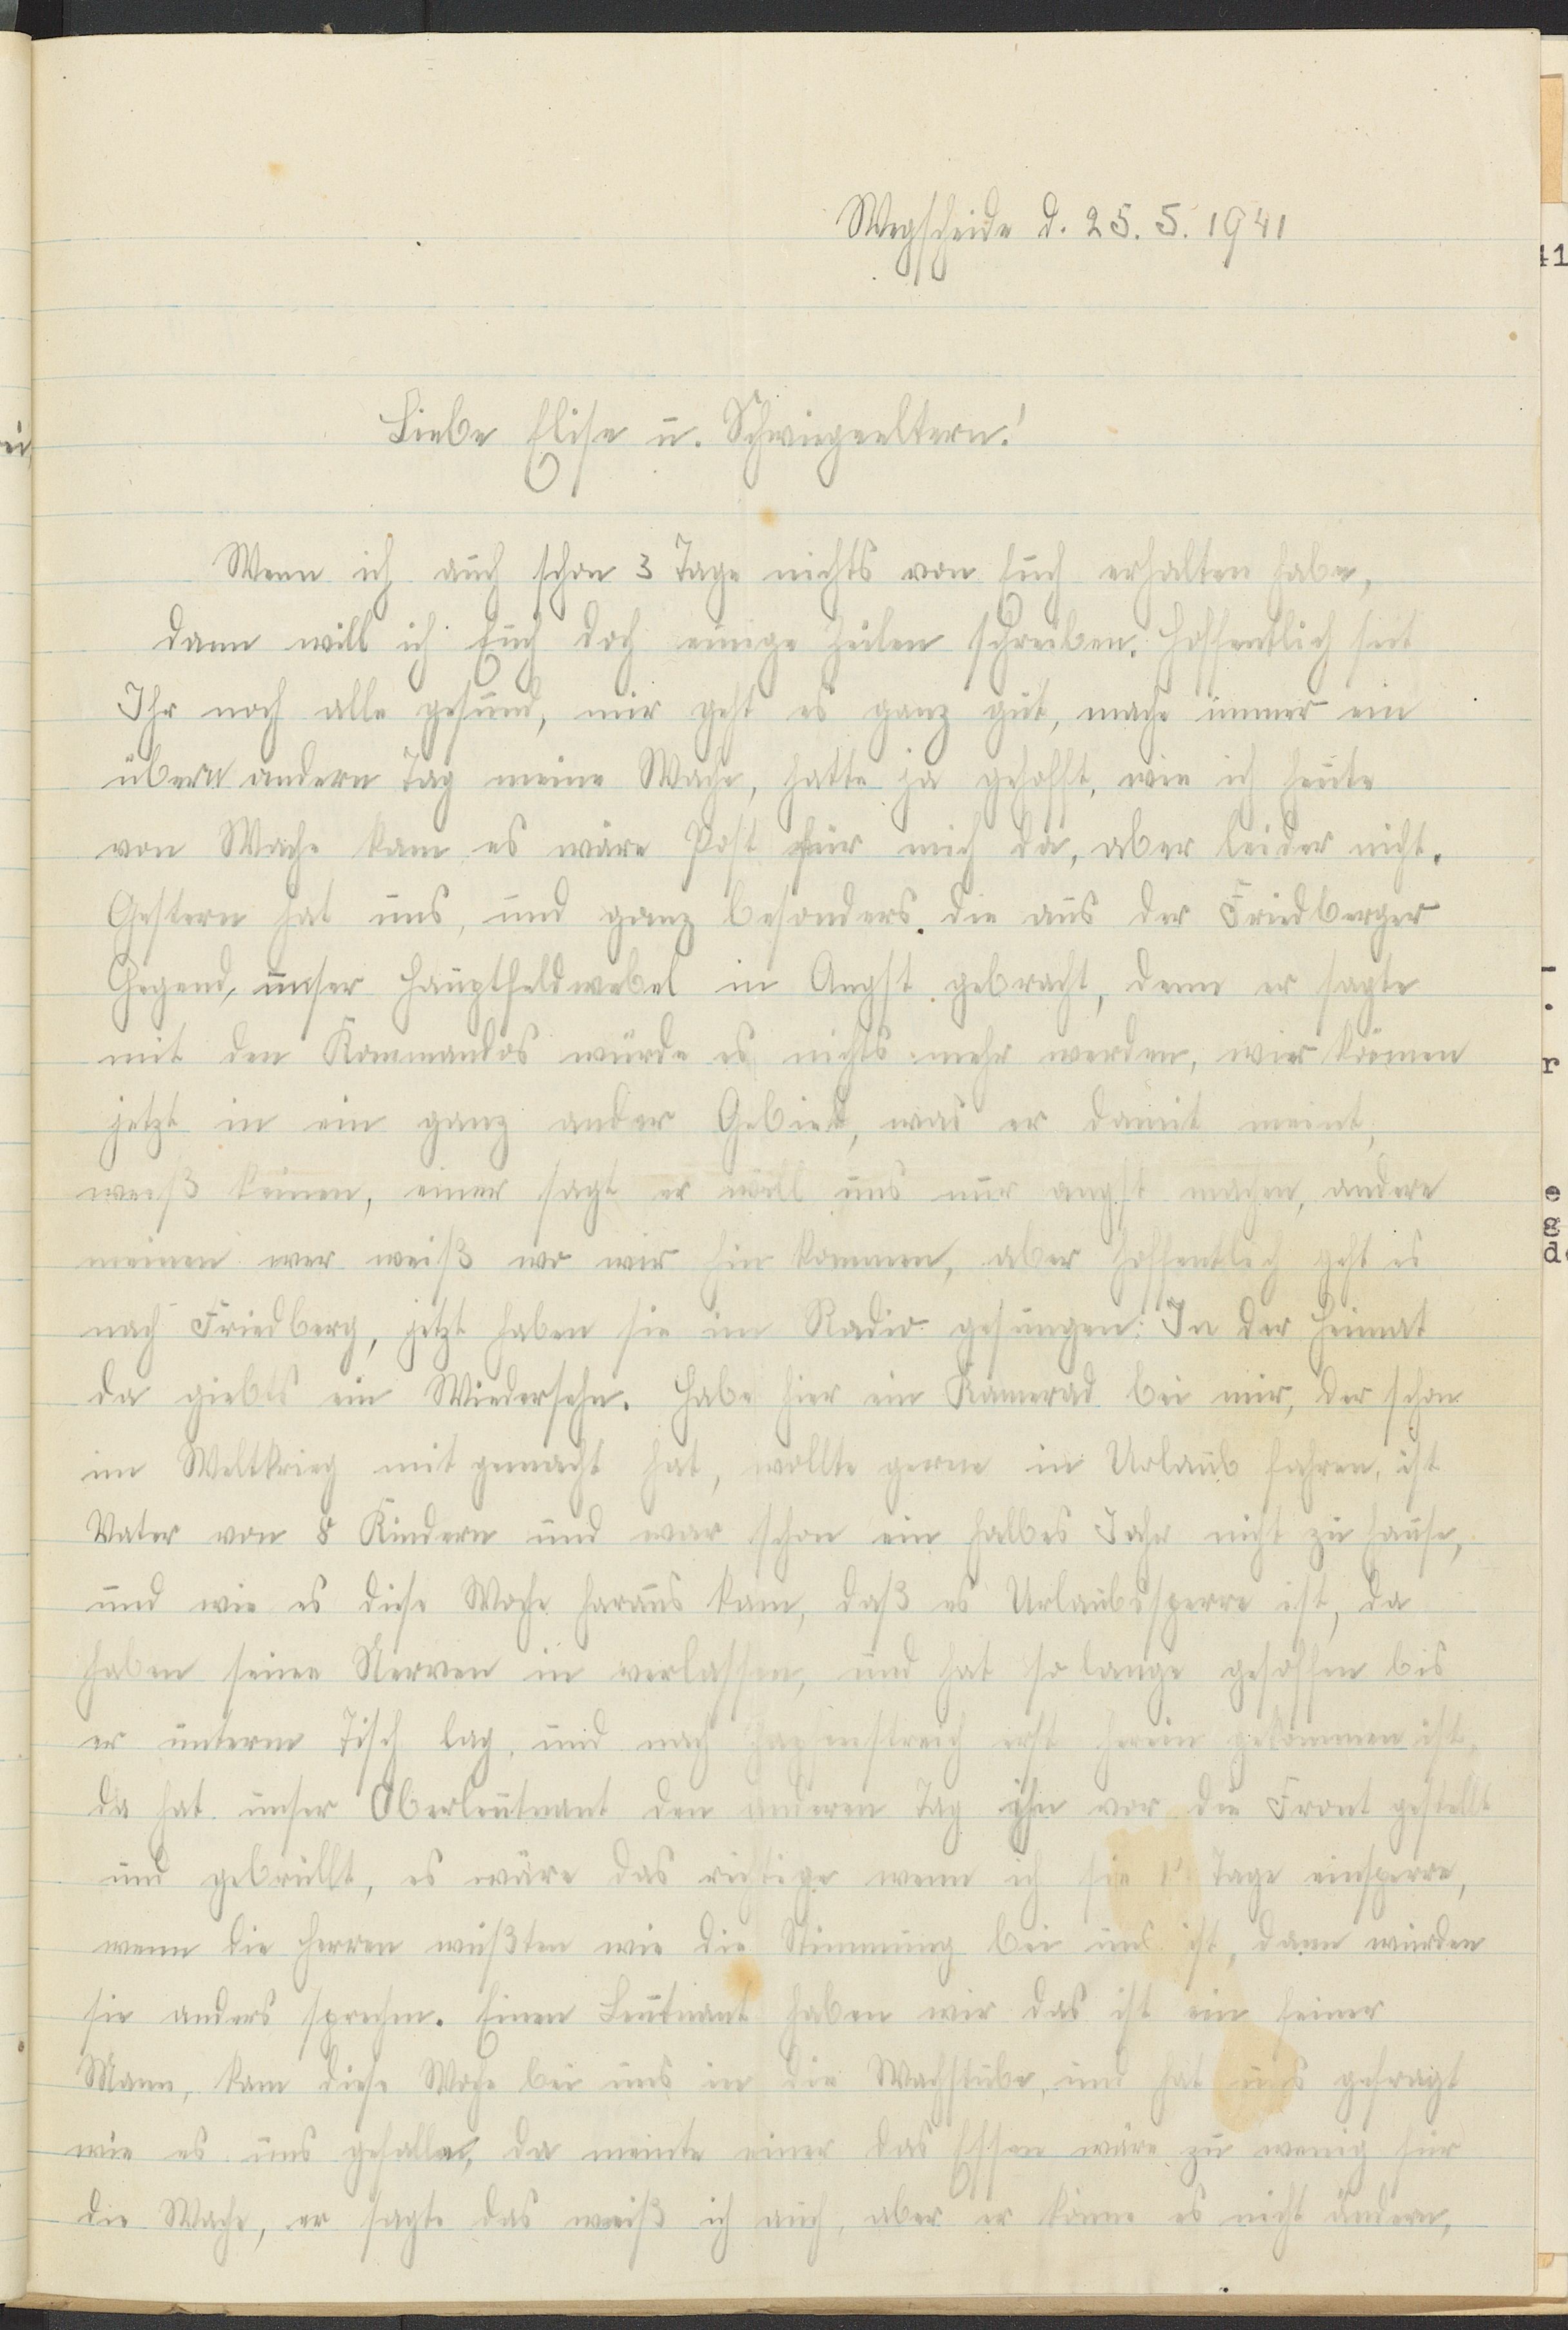 Wegscheide d. 25. 5. 1941
Liebe Elise u. Schwiegeeltern!
Wenn ich auch schon 3 Tage nichts von Euch erhalten habe,
dann will ich Euch doch einige Zeilen schreiben. Hoffentlich seit
Ihr noch alle gesund, mir geht es ganz gut, mache immer ein
übern andern Tag meine Wache, hatte ja gehofft, wie ich heute
von Wache kam es wäre Post für mich da, aber leider nicht.
Gestern hat uns, und ganz besonders die aus der Friedberger
Gegend, unser Hauptfeldwebel in Angst gebracht, denn er sagte
mit den Kommandos würde es nichts mehr werden, wir kömen
jetzt in ein ganz ander Gebiet, was er damit meint,
weiß keinen, einer sagt er will uns nur angst machen, andere
meinen wer weiß wo wir hin kommen, aber hoffentlich geht es
nach Friedberg, jetzt haben sie im Radio gesungen: In der Heimat
da giebts ein Wiedersehn. Habe hier ein Kamerad bei mir, der schon
im Weltkrieg mit gemacht hat, wollte gerne in Urlaub fahren, ist
Vater von 8 Kindern und war schon ein halbes Jahr nicht zu hause,
und wie es diese Woche haraus kam, daß es Urlaubssperre ist, da
haben seine Nerven in verlassen, und hat so lange gesoffen bis
er unterm Tisch lag, und nach Zapfenstreich erst herein gekommen ist,
da hat unser Oberleutnant den anderen Tag ihn vor die Front gestellt
und gebrüllt, es wäre das richtige wenn ich sie Tage einsperre,
wenn die Herren wüßten wie die Stimmung bei uns ist, dann würden
sie anders sprechen. Einen Leutnant haben wir das ist ein feiner
Mann, kam diese Woche bei uns in die Wachstube, und hat uns gefragt
wie es uns gefalle, da meinte einer das Essen wäre zu wenig für
die Wache, er sagte das weiß ich auch, aber er könne es nicht ändern,